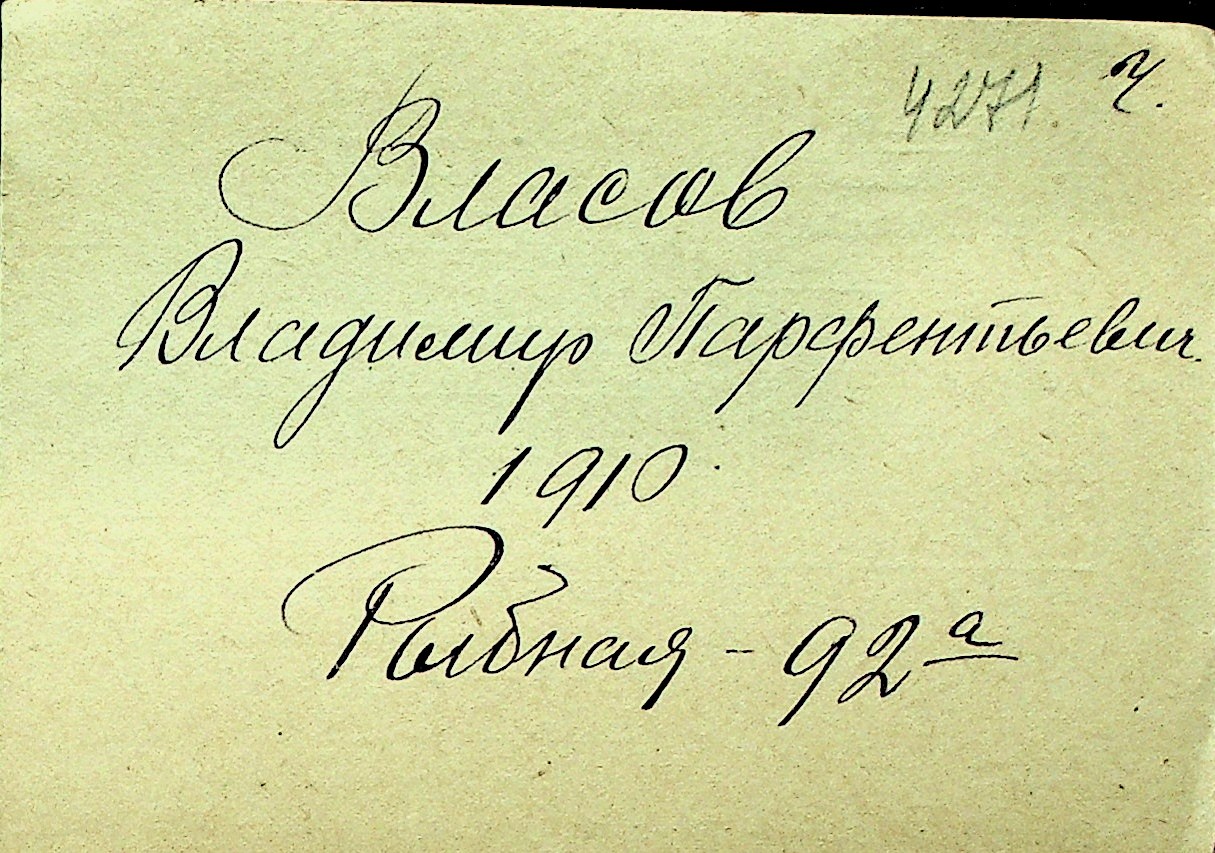 4271. Ч.
Власов
Владимир Парфентьевич.
1910
Рыбная - 92а